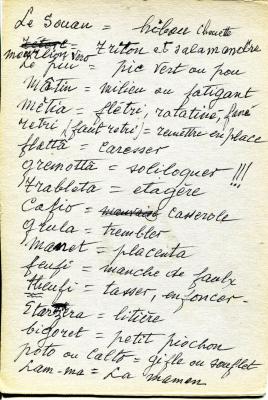 Le Souan = hibou chouette
mourlion vono = triton et salamandre
Le piu = pic vert ou pou
Mâtin = milieu ou fatigant
Mètia = flétri, ratatiné, fané
retri (faut retri) = remettre en place
flattâ = caresser
gremottâ = soliloquer !!!
Trableta = étagère
Cafio = casserole
grula = trembler
manet = placenta
feufi = manche de faulx
theufi = tasser, enfoncer -
Etarzera = litière
bigoret = petit piochon
poto ou calto = gifle ou soufflet
Lam-ma = La maman